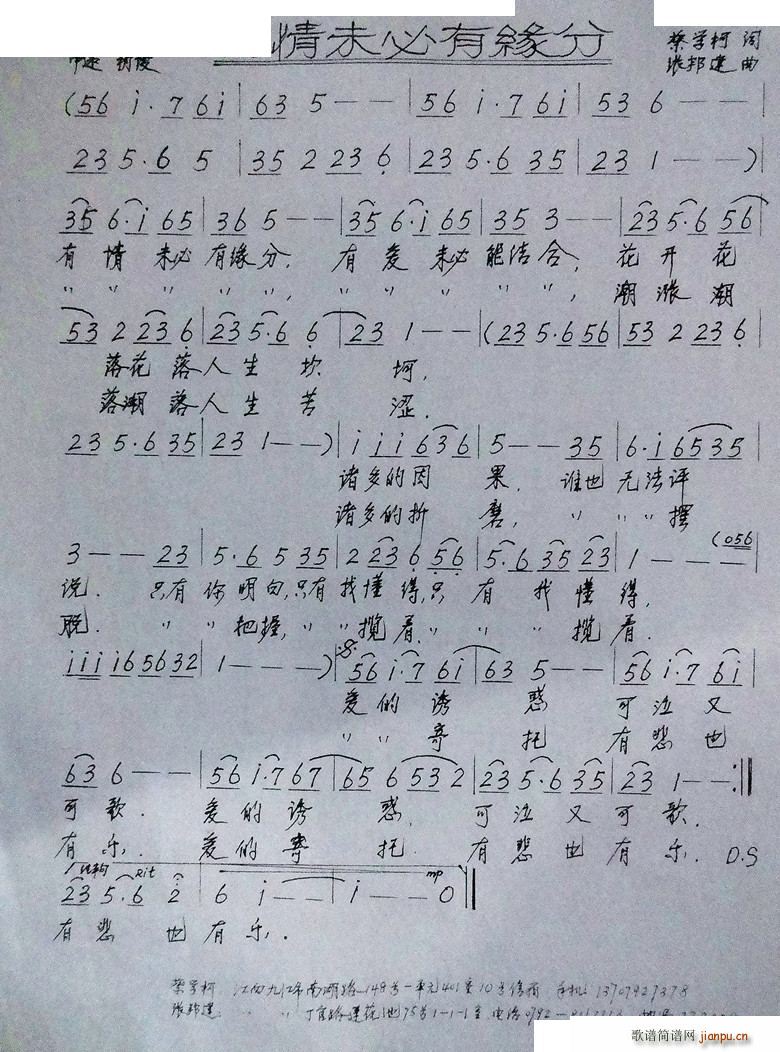 情未必有緣分
蔡学柯 词
张邦建 曲
中速
(56 i·7 6i | 63 5 - - | 56 i·7 6i | 53 6 - - |
23 5·6 5 | 35 2 23 6 | 23 5·6 35 | 23 1 - - )
35 6·i 65 | 36 5 - - | 35 6·i 65 | 35 3 - - | 23 5·6 56 |
有情未必有缘分, 有爱未必能结合, 花开花
〃 〃 〃 〃 〃, 〃 〃 〃 〃 〃, 潮涨潮
53 2 23 6 | 23 5·6 6 | 23 1 - - | (23 5·6 56 | 53 2 23 6 |
落花落人生坎坷,
落潮落人生苦涩.
23 5·6 35 | 23 1 - - ) | i i i 636 | 5 - - 35 | 6·i 6535 |
诸多的因果, 谁也无法评
诸多的折磨, 〃 〃 〃 〃 摆
3 - - 23 | 5·6 5 35 | 2 23 6 56 | 5·6 35 23 | 1 - - - (056
说. 只有你明白,只有我懂得,只有我懂得,
脱. 〃 〃 把握, 〃 〃 揽着. 〃 〃 〃 揽着.
i i i i6 56 32 | 1 - - ) | 56 i·7 6i | 63 5 - - | 56 i·7 6i |
爱的诱惑 可泣又
〃 〃 寄托 有悲也
63 6 - - | 56 i·7 67 | 65 6 53 2 | 23 5·6 35 | 23 1 - - :‖
可歌. 爱的诱惑. 可泣又可歌.
有乐. 爱的寄托. 有悲也有乐. D.S
结构 Rit mp
23 5·6 2 | 6 i - - | i - - 0 ‖
有悲也有乐.
蔡学柯 江西九江市南湖路148号一单元401室
张邦建 〃 〃 莲花池75号1-1-1室 电话0792
歌谱简谱网
jianpu.cn